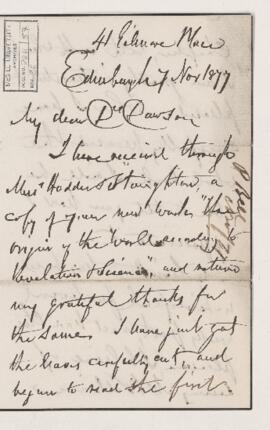 41 Gilmore Place
Edinburgh 7 Nov 1877
My dear Dr Dawson
I have received through
Messrs Hodder & Stoughton, a
copy of your new work "The
origin of the World according
Revelation & Science", and return
my grateful thanks for
the same. I have just got
the leaves carefully cut, and
begun to read the first.